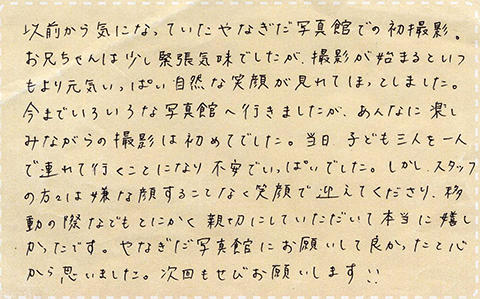 以前から気になっていたやなぎだ写真館での初撮影。
お兄ちゃんは少し緊張気味でしたが、撮影が始まるといつ
もより元気いっぱい自然な笑顔が見れてほっとしました。
今までいろいろな写真館へ行きましたが、あんなに楽し
みながらの撮影は初めてでした。当日、子ども三人を一人
で連れて行くことになり不安でいっぱいでした。しかし、スタッフ
の方々は嫌な顔することなく笑顔で迎えてくださり、移
動の際などもとにかく親切にしていただいて本当に嬉し
かったです。やなぎだ写真館にお願いして良かったと心
から思いました。次回もぜひお願いします!!